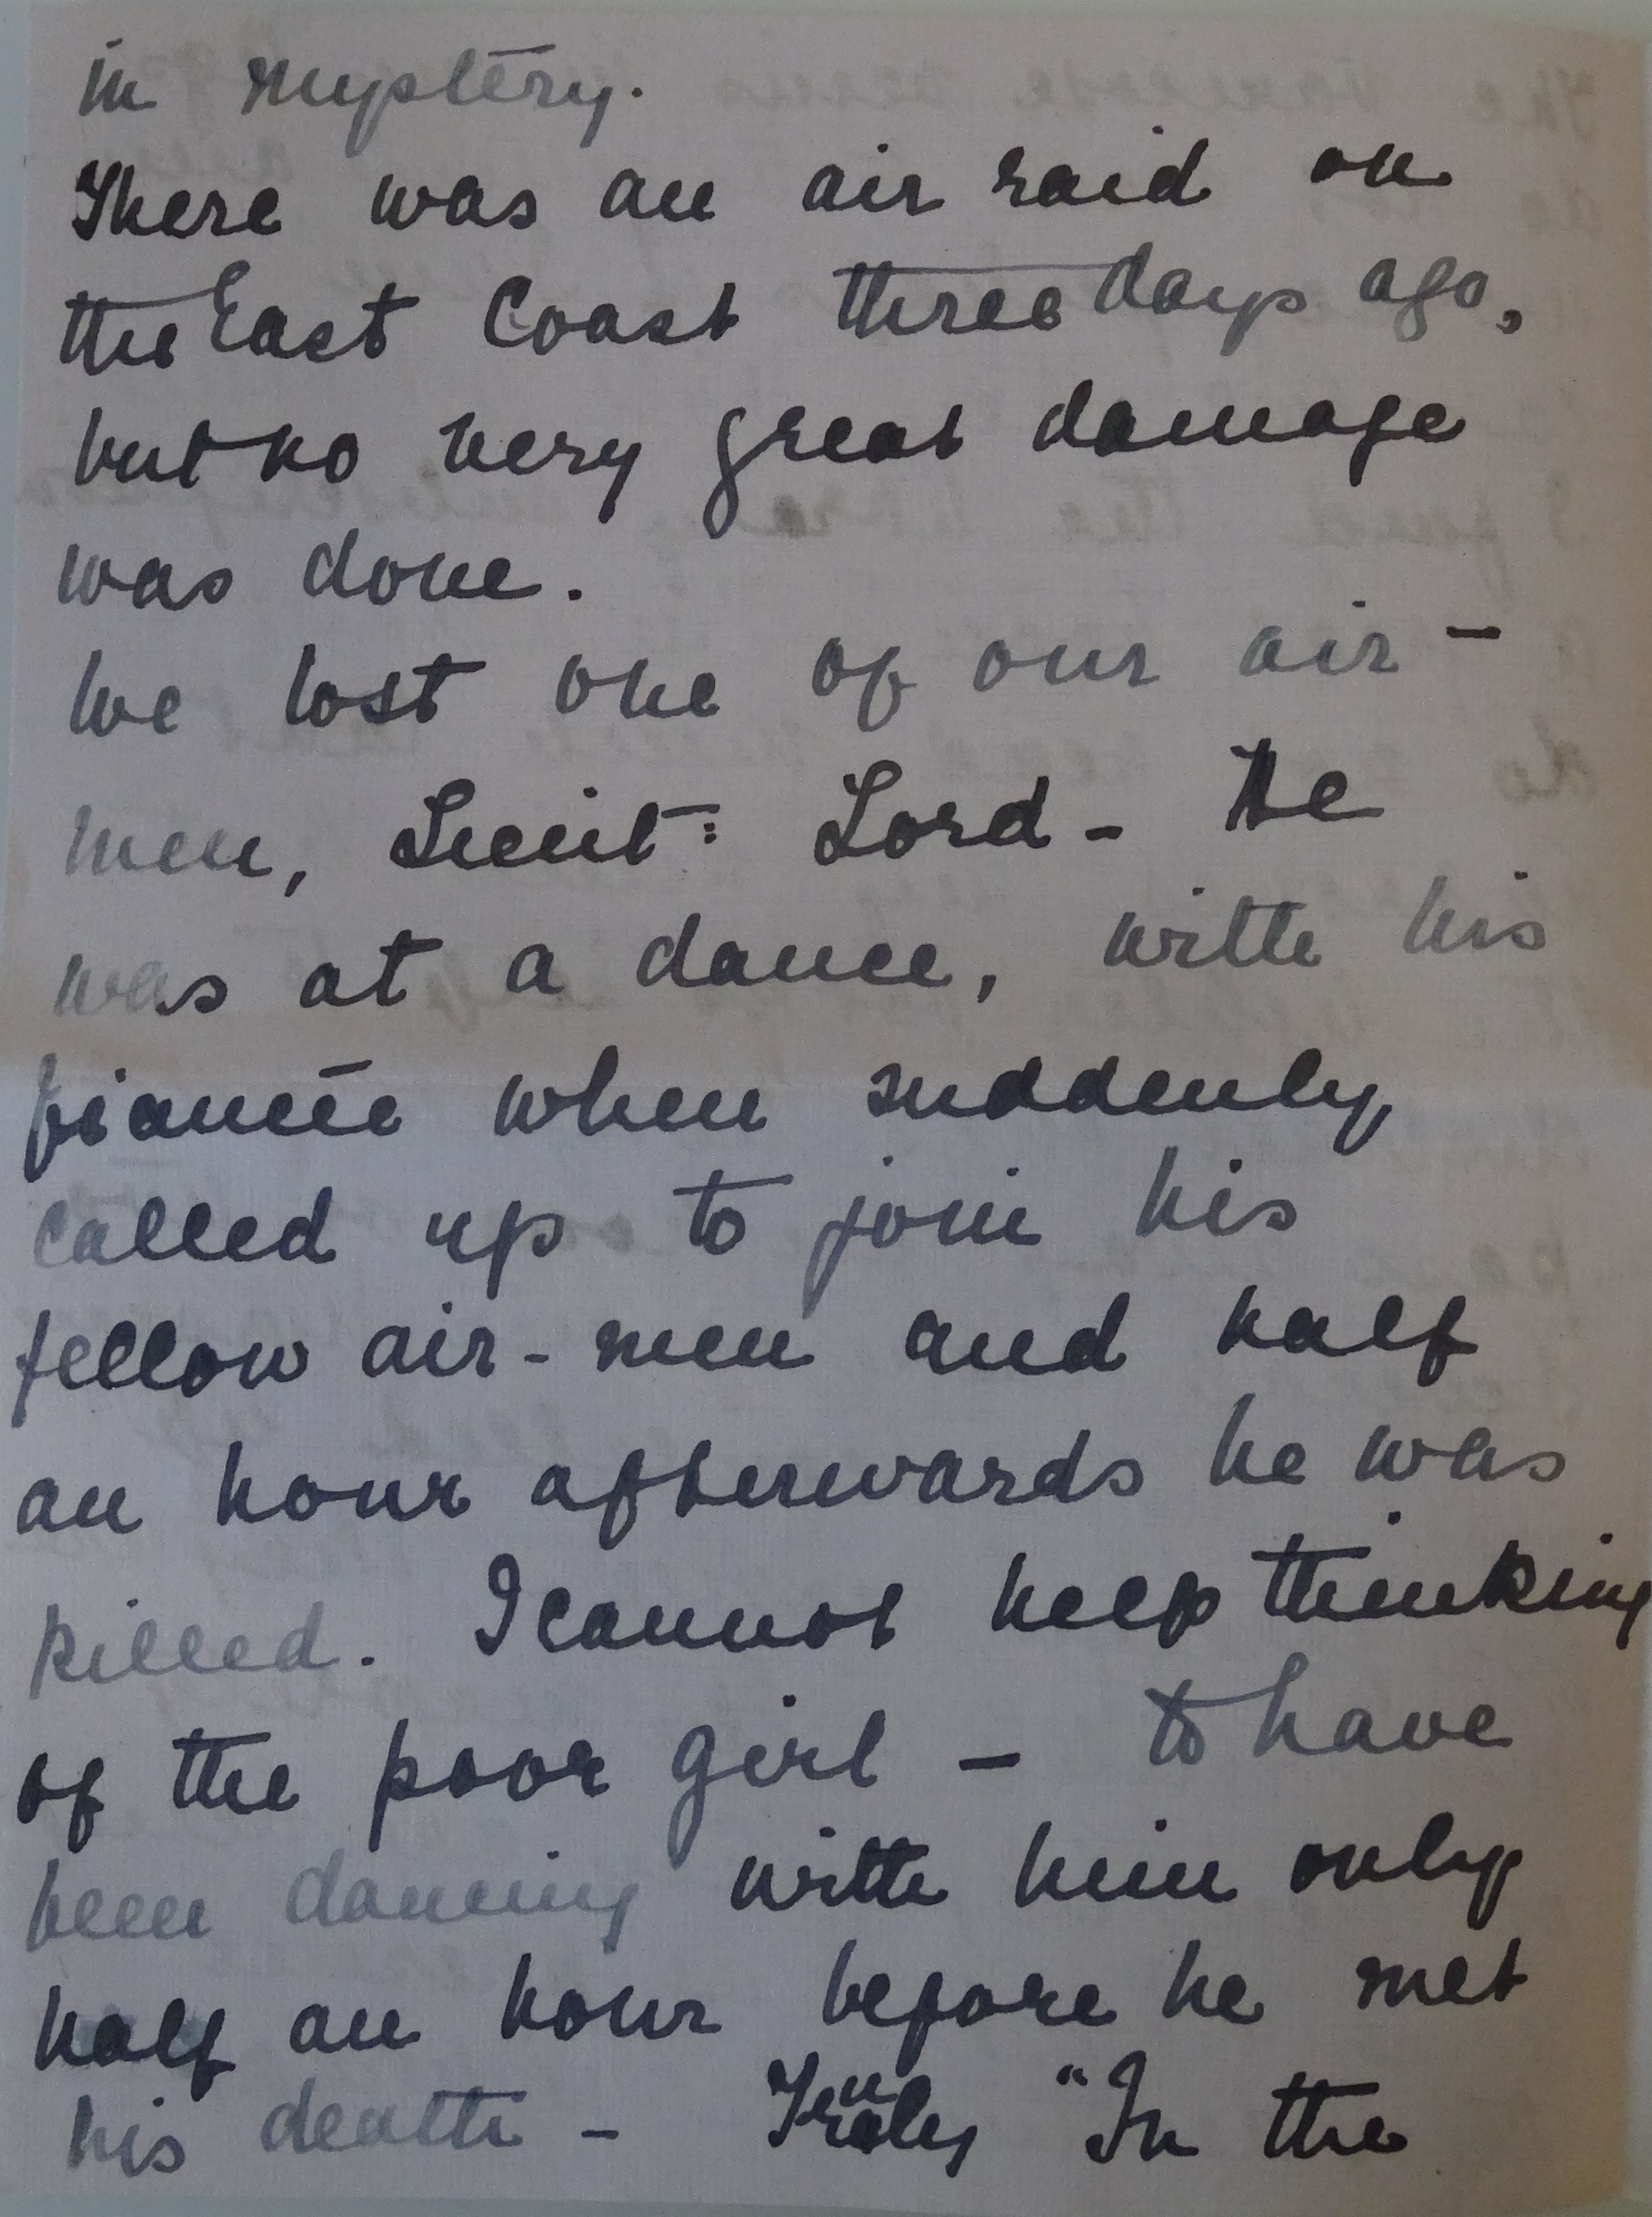 in mystery.
There was an air raid on
the East Coast three days ago,
but no very great damage
was done.
We lost one of our air-
men, Lieut: Lord - He
was at a dance, with his
fiancée when suddenly
called up to join his
fellow air-men and half
an hour afterwards he was
killed. I cannot help thinking
of the poor girl - to have
been dancing with him only
half an hour before he met
his death - Truly "In the